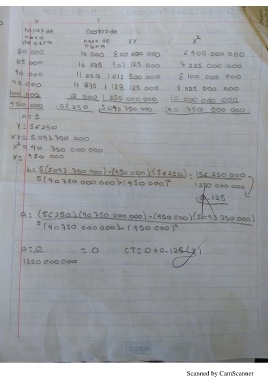 X Y
Horas de Costos de
mano mano de XY X²
de obra obra
80 000 10 000 800 000 000 6 400 000 000
85 000 10 625 903 125 000 7 225 000 000
90 000 11 250 1 012 500 000 8 100 000 000
11 875 1 128 125 000 9 025 000 000
100 000 12 500 1 250 000 000 10 000 000 000
450 000 56250 5,093 750 000 40 750 000 000
n = 5
Y = 56250
XY = 5.093.750.000
X² = 40 750 000 000
X = 450 000
b = 5(5093 750 000) - (450 000)(56250) = 156 250 000
5(40 750 000 000) - (450 000)² 1250 000 000
0.125
a = (56250)(40 750 000 000) - (450 000)(5093 750 000)
5(40 750 000 000) - (450 000)²
a = 0 = 0 CT = 0 + 0.125(X)
1250 000 000
Scanned by CamScanner